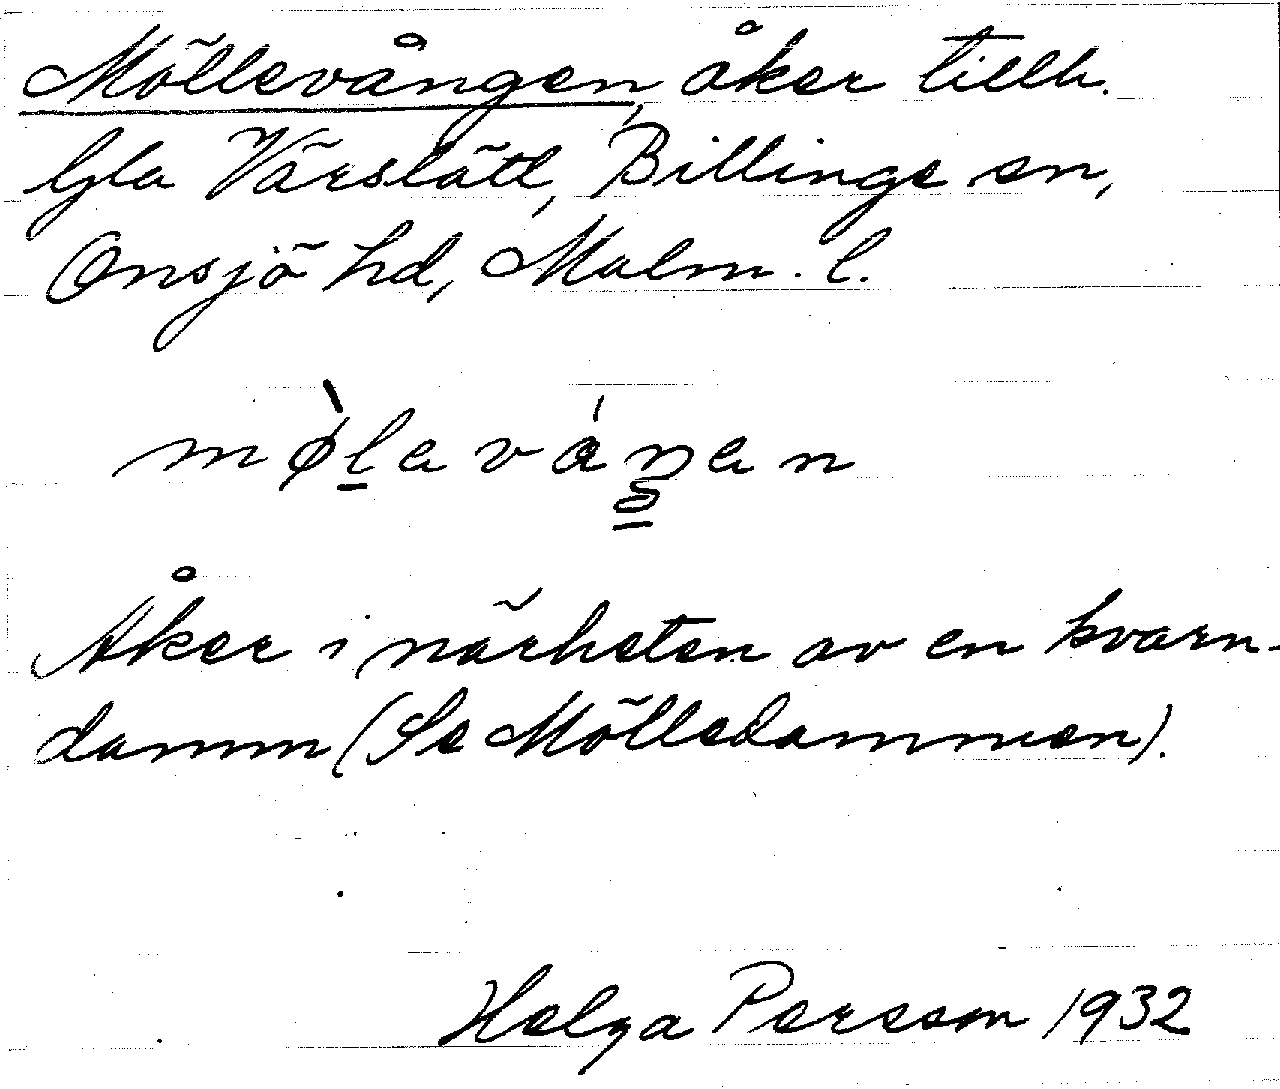 Möllevången, åker tillh.
Gla Värslätt, Billinge sn,
Onsjö hd, Malm. l.
mø̀laváŋan
Åker i närheten av en kvarn-
damm (Se Mölledammen).
Helga Persson 1932